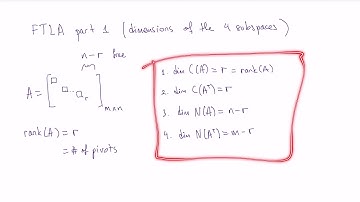 FTLA part 1 (dimensions of the 4 subspaces)
n-r free
A = [ □ □...□r ] m×n
rank(A) = r
= # of pivots
1. dim C(A) = r = rank(A)
2. dim C(Aᵀ) = r
3. dim N(A) = n-r
4. dim N(Aᵀ) = m-r